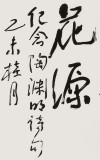 花源
纪念陶渊明诗句
乙未桂月